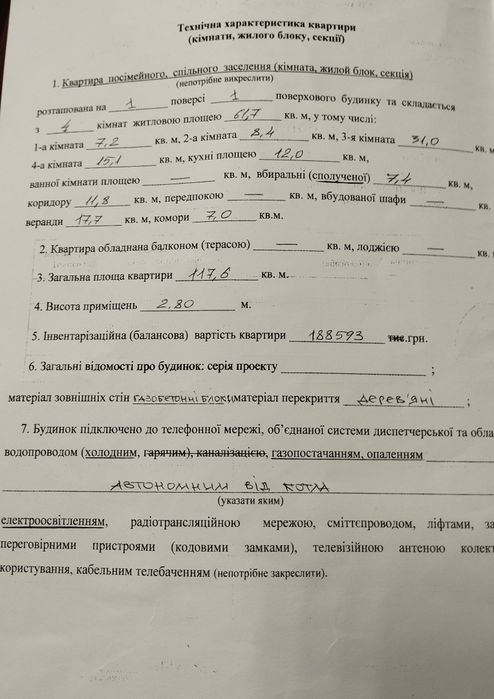 Технічна характеристика квартири
(кімнати, жилого блоку, секції)
1. Квартира посімейного, спільного заселення (кімната, жилой блок, секція)
(непотрібне викреслити)
розташована на 1 поверсі 1 поверхового будинку та складається
з 4 кімнат житловою площею 61,7 кв. м, у тому числі:
1-а кімната 7,2 кв. м, 2-а кімната 8,4 кв. м, 3-я кімната 31,0 кв. м
4-а кімната 15,1 кв. м, кухні площею 12,0 кв. м,
ванної кімнати площею — кв. м, вбиральні (сполученої) 7,4 кв. м,
коридору 11,8 кв. м, передпокою — кв. м, вбудованої шафи — кв.
веранди 17,7 кв. м, комори 7,0 кв.м.
2. Квартира обладнана балконом (терасою) — кв. м, лоджією — кв. м
3. Загальна площа квартири 117,6 кв. м.
4. Висота приміщень 2.80 м.
5. Інвентарізаційна (балансова) вартість квартири 188593 тис.грн.
6. Загальні відомості про будинок: серія проекту ;
матеріал зовнішніх стін газобетонні блоки матеріал перекриття дерев'яні ;
7. Будинок підключено до телефонної мережі, об'єднаної системи диспетчерської та обла
водопроводом (холодним, гарячим), каналізацією, газопостачанням, опаленням
автономним від котла
(указати яким)
електроосвітленням, радіотрансляційною мережою, сміттєпроводом, ліфтами, за
переговірними пристроями (кодовими замками), телевізійною антеною колек
користування, кабельним телебаченням (непотрібне закреслити).